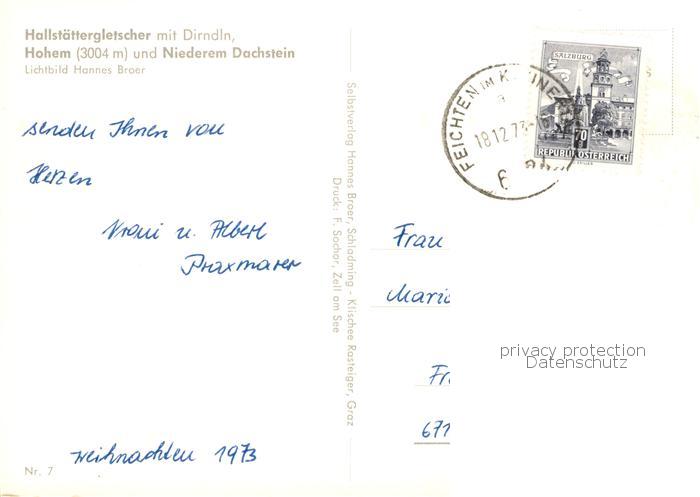 Hallstättergletscher mit Dirndln,
Hohem (3004 m) und Niederem Dachstein
Lichtbild Hannes Broer
senden Ihnen von
Herzen
Vroni u. Albert
Praxmarer
Weihnachten 1973
Nr. 7
Selbstverlag Hannes Broer, Schladming - Klischee Rasteiger, Graz
Druck: F. Sochor, Zell am See
FEICHTEN IM K
18.12.73
6
SALZBURG
70
REPUBLIK ÖSTERREICH
Frau
Maria
Fr
671
privacy protection
Datenschutz